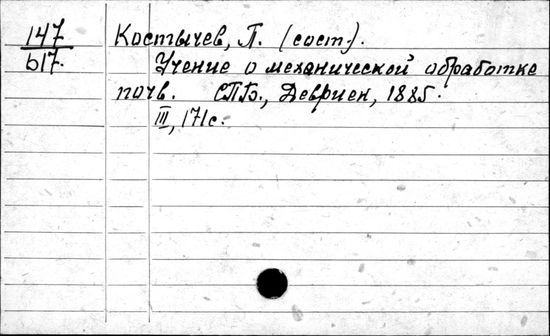 147
617.
Костычев, П. (сост.).
Учение о механической обработке
почв. СПБ., Девриен, 1885.
III, 171с.